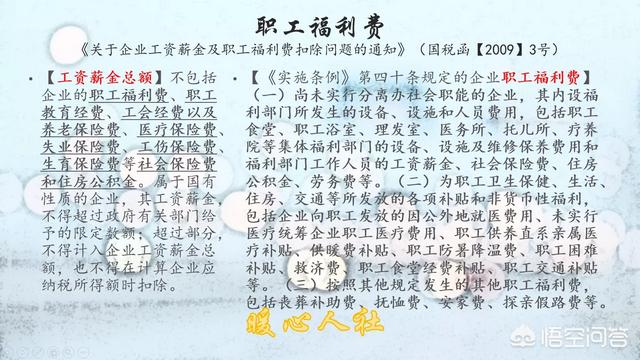 职工福利费
《关于企业工资薪金及职工福利费扣除问题的通知》（国税函【2009】3号）
• 【工资薪金总额】不包括
企业的职工福利费、职工
教育经费、工会经费以及
养老保险费、医疗保险费、
失业保险费、工伤保险费、
生育保险费等社会保险费
和住房公积金。属于国有
性质的企业，其工资薪金，
不得超过政府有关部门给
予的限定数额；超过部分，
不得计入企业工资薪金总
额，也不得在计算企业应
纳税所得额时扣除。
• 【《实施条例》第四十条规定的企业职工福利费】
（一）尚未实行分离办社会职能的企业，其内设福
利部门所发生的设备、设施和人员费用，包括职工
食堂、职工浴室、理发室、医务所、托儿所、疗养
院等集体福利部门的设备、设施及维修保养费用和
福利部门工作人员的工资薪金、社会保险费、住房
公积金、劳务费等。（二）为职工卫生保健、生活、
住房、交通等所发放的各项补贴和非货币性福利，
包括企业向职工发放的因公外地就医费用、未实行
医疗统筹企业职工医疗费用、职工供养直系亲属医
疗补贴、供暖费补贴、职工防暑降温费、职工困难
补贴、救济费、职工食堂经费补贴、职工交通补贴
等。（三）按照其他规定发生的其他职工福利费，
包括丧葬补助费、抚恤费、安家费、探亲假路费等。
暖心人社
悟空问答